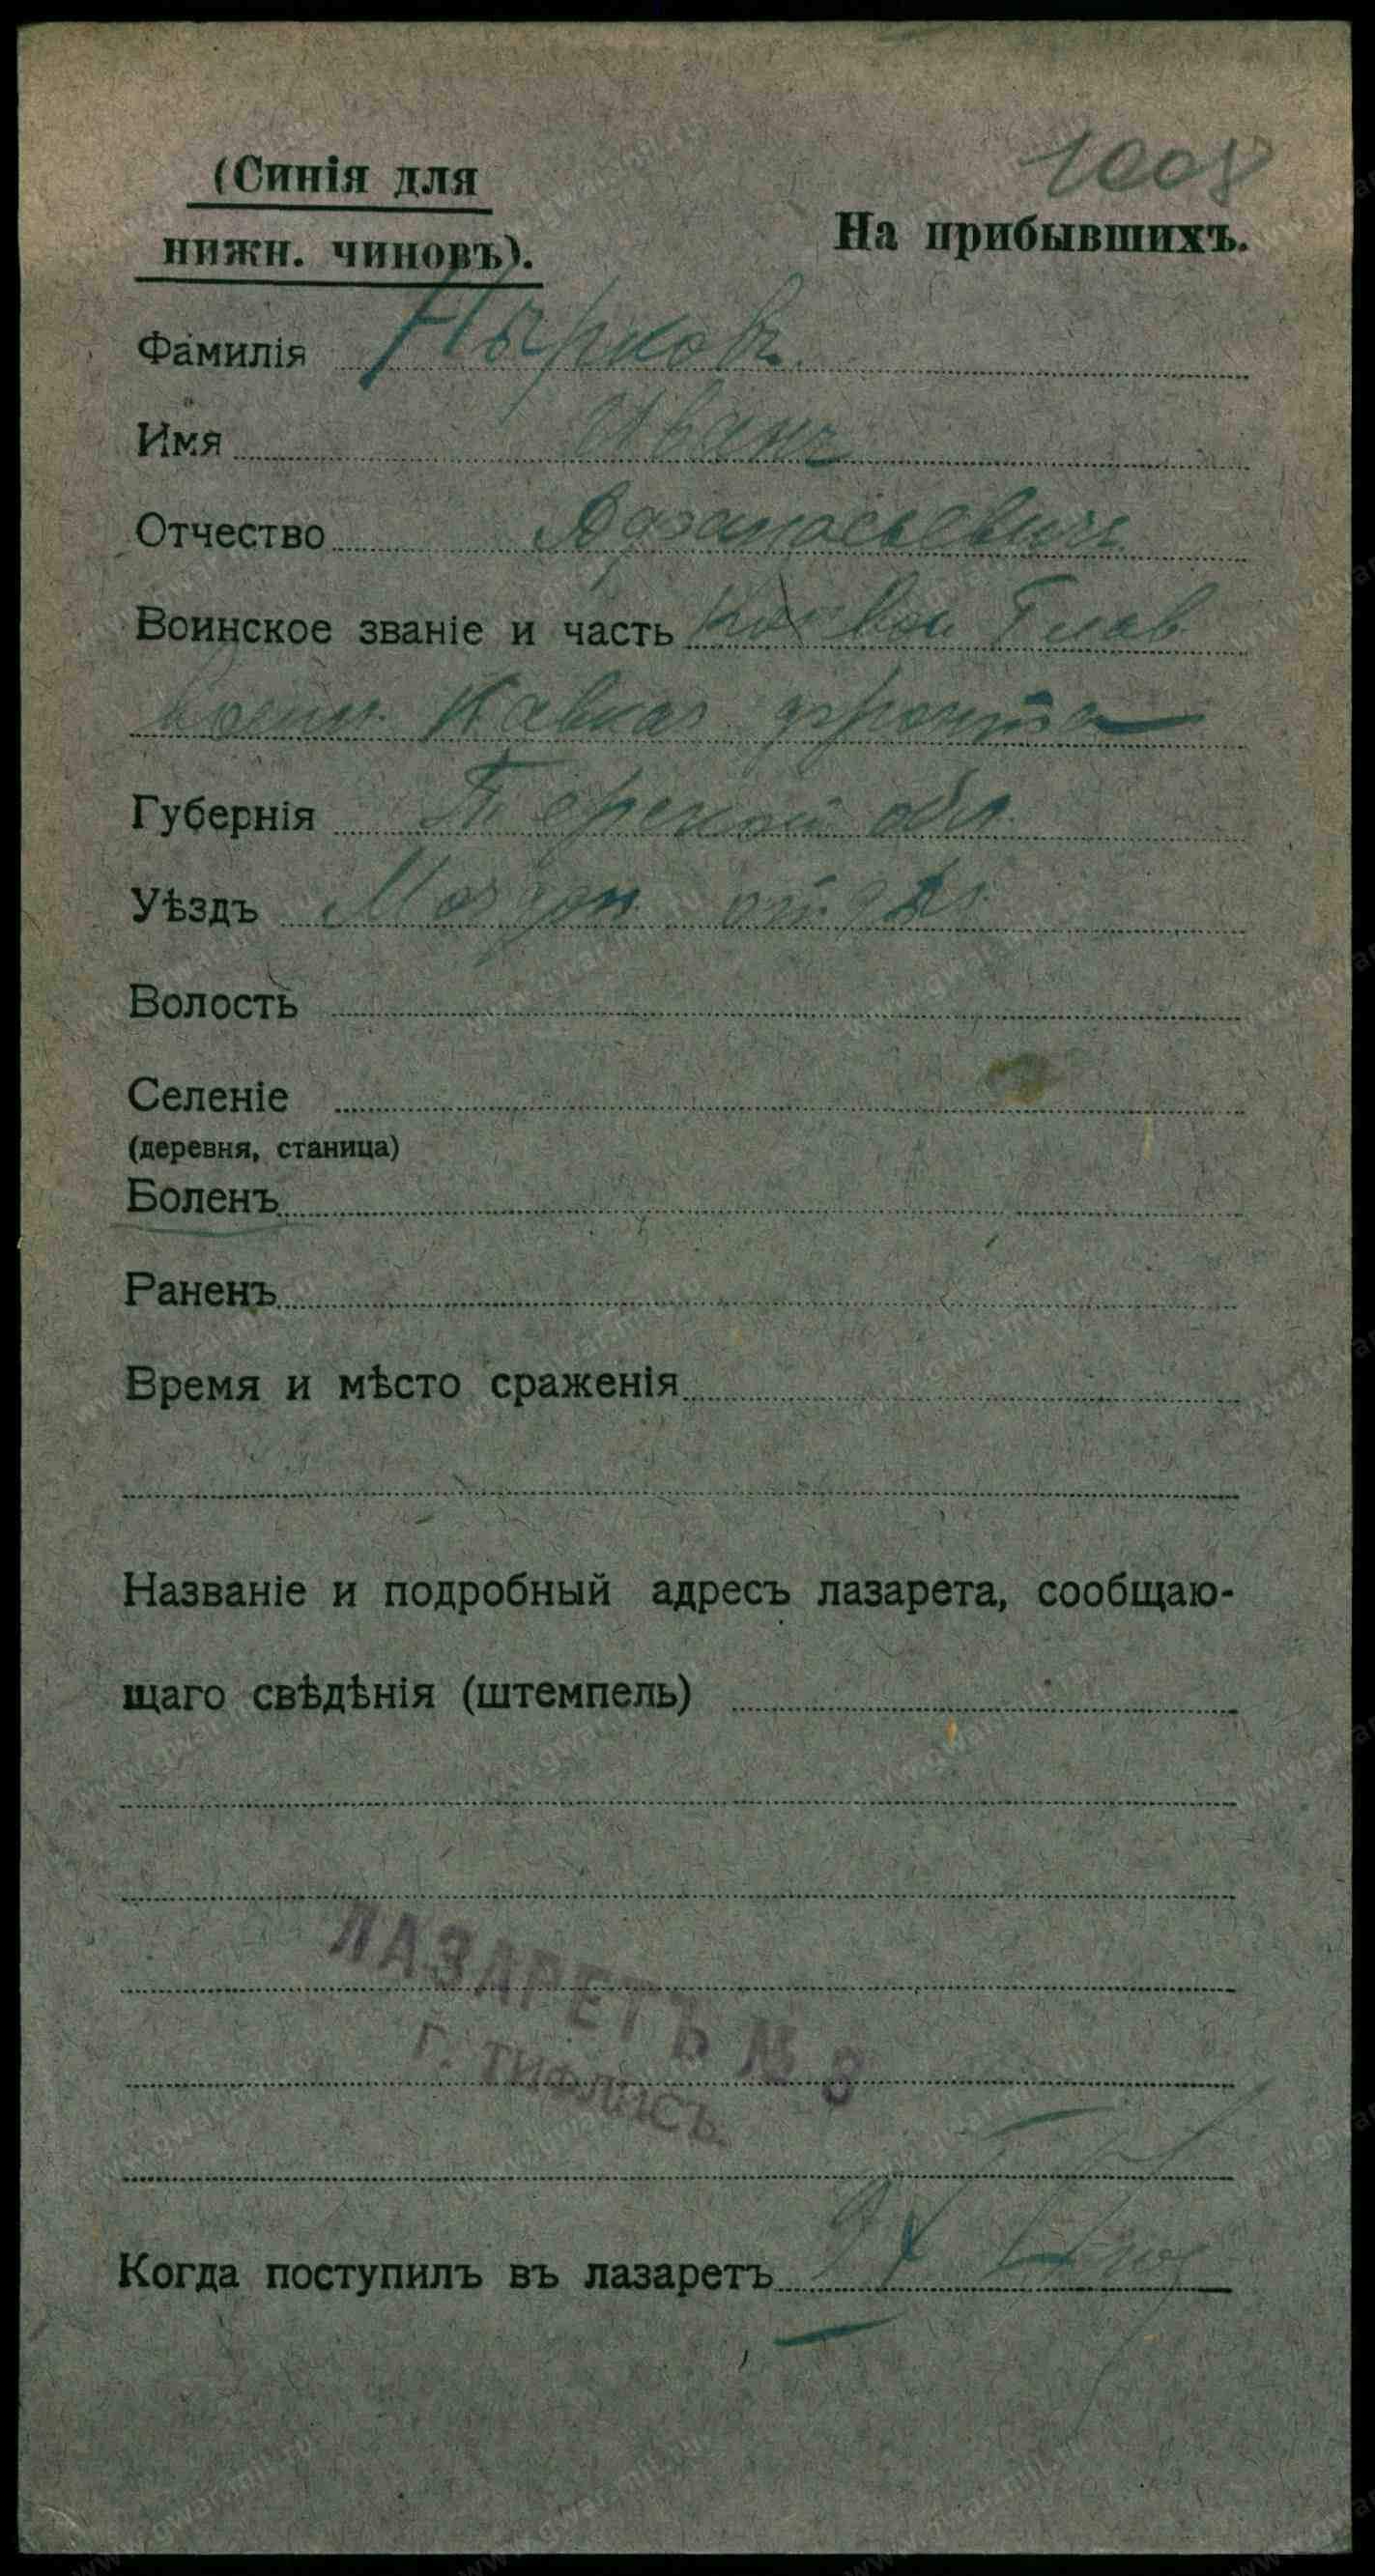 1008
(Синія для
нижн. чиновъ).
На прибывшихъ.
Фамилія Нырковъ.
Имя Иванъ
Отчество Афанасьевичъ
Воинское званіе и часть Глав
Кавказ фронта
Губернія Терской обл.
Уѣздъ Моздок. отд.
Волость
Селеніе
(деревня, станица)
Боленъ
Раненъ
Время и мѣсто сраженія
Названіе и подробный адресъ лазарета, сообщаю-
щаго свѣдѣнія (штемпель)
ЛАЗАРЕТЪ № 8
Г. ТИФЛИСЪ.
Когда поступилъ въ лазаретъ